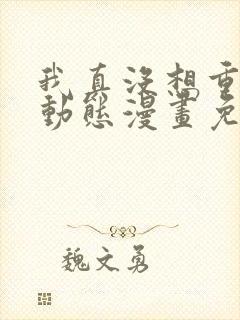 我真沒想重
動態漫畫免
魏文勇